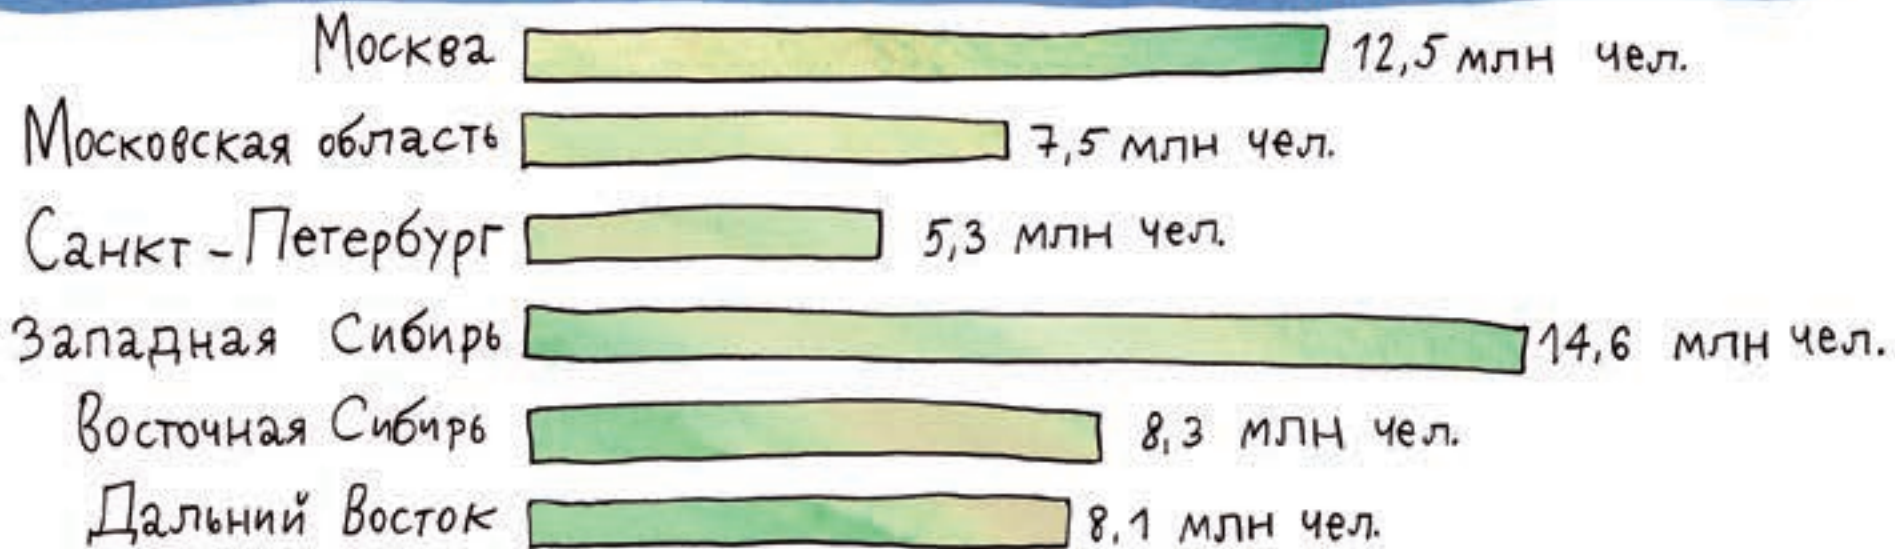 Москва 12,5 млн чел.
Московская область 7,5 млн чел.
Санкт-Петербург 5,3 млн чел.
Западная Сибирь 14,6 млн чел.
Восточная Сибирь 8,3 млн чел.
Дальний Восток 8,1 млн чел.